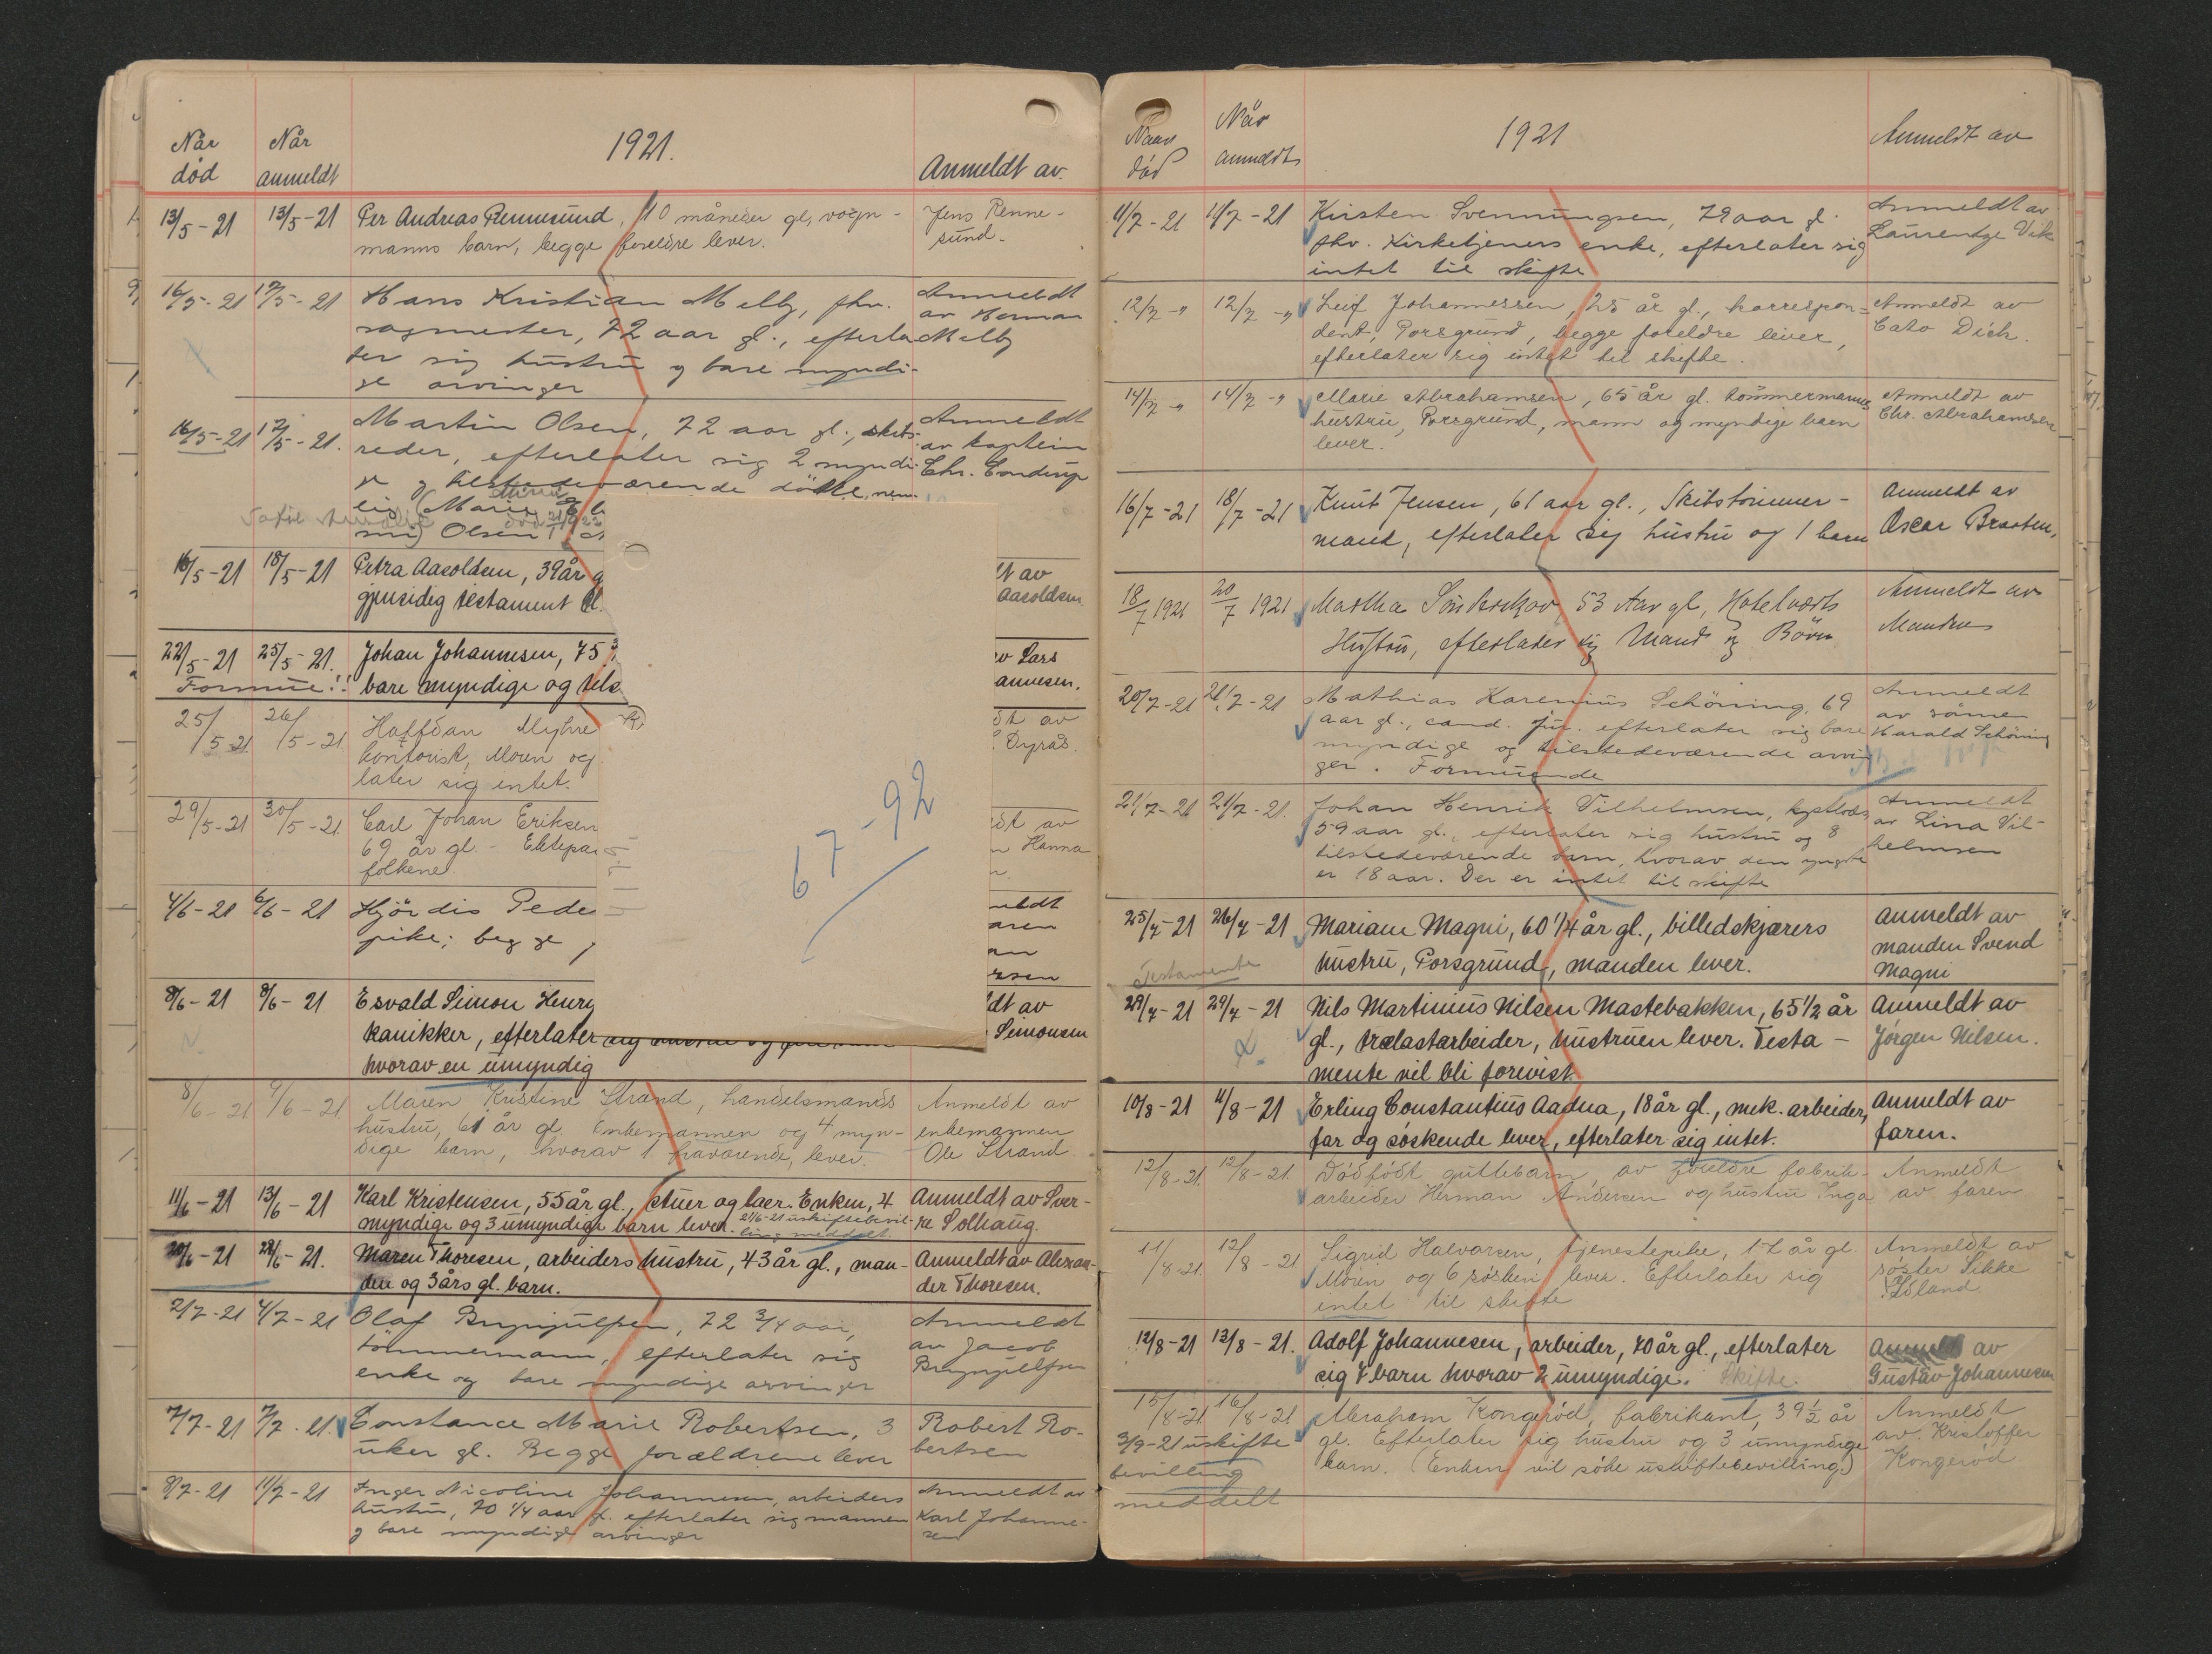 Når død
Når anmeldt
1921.
Anmeldt av.
13/5-21 13/5-21 Per Andreas Rennesund, 10 måneder gl, vogn- Jens Renne-
manns barn, begge foreldre lever. sund.
16/5-21 17/5-21 Hans Kristian Melby, fhv. Anmeldt
sagmester, 72 aar gl., efterla- av Herman
ter sig hustru og bare myndi- Melby
ge arvinger
16/5-21 17/5-21. Martin Olsen, 72 aar gl., skibs- Anmeldt
reder, efterlater sig 2 myndi- av kaptein
ge og tilstedeværende døtre, nem- Chr.
lig (Marie
Olsen
16/5-21 18/5-21 Petra Aaroldsen, 39 år g
gjensidig testament
lt av
Aaroldsen.
22/5-21 25/5-21. Johan Johannesen, 75
Formue!! bare myndige og tils
av Lars
annesen.
25/5-21 26/5-21 Halfdan Myhre
kontorist, Moren og
later sig intet.
dt av
Dyrås.
29/5-21 30/5-21. Carl Johan Eriksen
69 år gl. - Ektepa
folkene.
dt av
n Hanna
4/6-21 6/6-21 Hjördis Pede
pike; begge
meldt
aren
an
rsen
8/6-21 8/6-21 Esvald Simon Henry
kanikker, efterlater
hvorav en umyndig
ldt av
Simonsen
67-92
8/6-21 9/6-21 Maren Kristine Strand, handelsmands Anmeldt av
hustru, 61 år gl. Enkemannen og 4 myn- enkemannen
dige barn, hvorav 1 fraværende, lever. Ole Strand.
11/6-21 13/6-21 Karl Kristensen, 55 år gl., stuer og laer. Enken, 4 Anmeldt av Sver-
myndige og 3 umyndige barn lever. 21/6-21 uskiftebevil- re Solhaug.
ling meddelt.
20/6-21 28/6-21. Maren Thoresen, arbeiders hustru, 43 år gl., man- Anmeldt av Alexan-
den og 3 års gl. barn. der Thoresen.
2/7-21 4/7-21 Olaf Brynjulfsen, 72 3/4 aar, Anmeldt
tömmermann, efterlater sig av Jacob
enke og bare myndige arvinger Brynjulfsen
7/7-21 7/7-21. Constance Marie Robertsen, 3 Robert Ro-
uker gl. Begge forældrene lever bertsen
8/7-21 11/7-21 Inger Nicoline Johannesen, arbeiders Anmeldt av
hustru, 70 1/4 aar gl. efterlater sig mannen Karl Johanne-
og bare myndige arvinger sen
Naar død
Når anmeldt
1921
Anmeldt av
11/7-21 11/7-21 Kirsten Svenningsen, 79 aar gl. Anmeldt av
fhv. Kirketjeners enke, efterlater sig Laurentze Vik
intet til skifte
12/7-" 12/7-" Leif Johannessen, 25 år gl., korrespon- Anmeldt av
dent, Porsgrund, begge foreldre lever, Cato Dich.
efterlater sig intet til skifte.
14/7-" 14/7-" Marie Abrahamsen, 65 år gl. tömmermanns Anmeldt av
hustru, Porsgrund, mann og myndige barn Chr. Abrahamsen
lever.
16/7-21 18/7-21 Knut Jensen, 61 aar gl., Skibstömmer- Anmeldt av
mand, efterlater sig hustru og 1 barn Oscar Braaten.
18/7 1921 20/7 1921 Martha Sönderskov, 53 Aar gl, Hotelværts Anmeldt av
Hustru, efterlader sig Mand og Börn Manden
20/7-21 21/7-21 Mathias Karenius Schöning, 69 Anmeldt
aar gl., cand. jur. efterlater sig bare av sönnen
myndige og tilstedeværende arvin- Harald Schöning
ger. Formuende
21/7-21 21/7-21. Johan Henrik Vilhelmsen, Anmeldt
59 aar gl., efterlater sig hustru og 8 av Lina Vil-
tilstedeværende barn, hvorav den yngste helmsen
er 18 aar. Der er intet til skifte
25/7-21 26/7-21 Mariane Magni, 60 1/4 år gl., billedskjærers Anmeldt av
hustru, Porsgrund, manden lever. manden Svend
Testamente Magni
29/7-21 29/7-21 Nils Martinius Nilsen Mastebakken, 65 1/2 år Anmeldt av
gl., trælastarbeider, hustruen lever. Testa- Jörgen Nilsen.
mente vil bli forevist.
10/8-21 11/8-21 Erling Constantius Aadna, 18 år gl., mek. arbeider, Anmeldt av
far og söskende lever, efterlater sig intet. faren.
12/8-21. 12/8-21. Dödfödt guttebarn av foreldre fabrik- Anmeldt
arbeider Herman Andersen og hustru Inga av faren
11/8-21. 12/8-21 Sigrid Halvorsen, tjenestepike, 17 år gl. Anmeldt av
Moren og 6 sösken lever. Efterlater sig söster Sikke
intet til skifte Island.
12/8-21 13/8-21. Adolf Johannesen, arbeider, 70 år gl., efterlater Anmeldt av
sig 7 barn hvorav 2 umyndige. Skifte. Gustav Johannesen
15/8-21 16/8-21 Abraham Kongeröd, fabrikant, 39 1/2 år Anmeldt
3/9-21 uskifte gl. Efterlater sig hustru og 3 umyndige av Kristoffer
bevilling barn. (Enken vil söke uskiftebevilling.) Kongeröd
meddelt